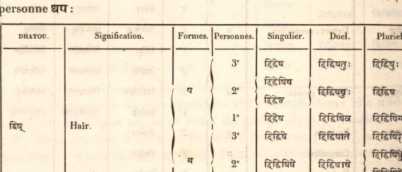 personne थप :
DHATOU. Signification. Formes. Personnes. Singulier. Duel. Pluriel
3ᵉ दिद्वेष दिद्विषतुः दिद्विषुः
दिद्वेषिथ
प 2ᵉ दिद्विषथुः दिद्विष
दिद्वेष्ठ
1ᵉ दिद्वेष दिद्विषिव
द्विष् Haïr.
3ᵉ दिद्विषे दिद्विषाते
म 2ᵉ दिद्विषिषे दिद्विषाथे